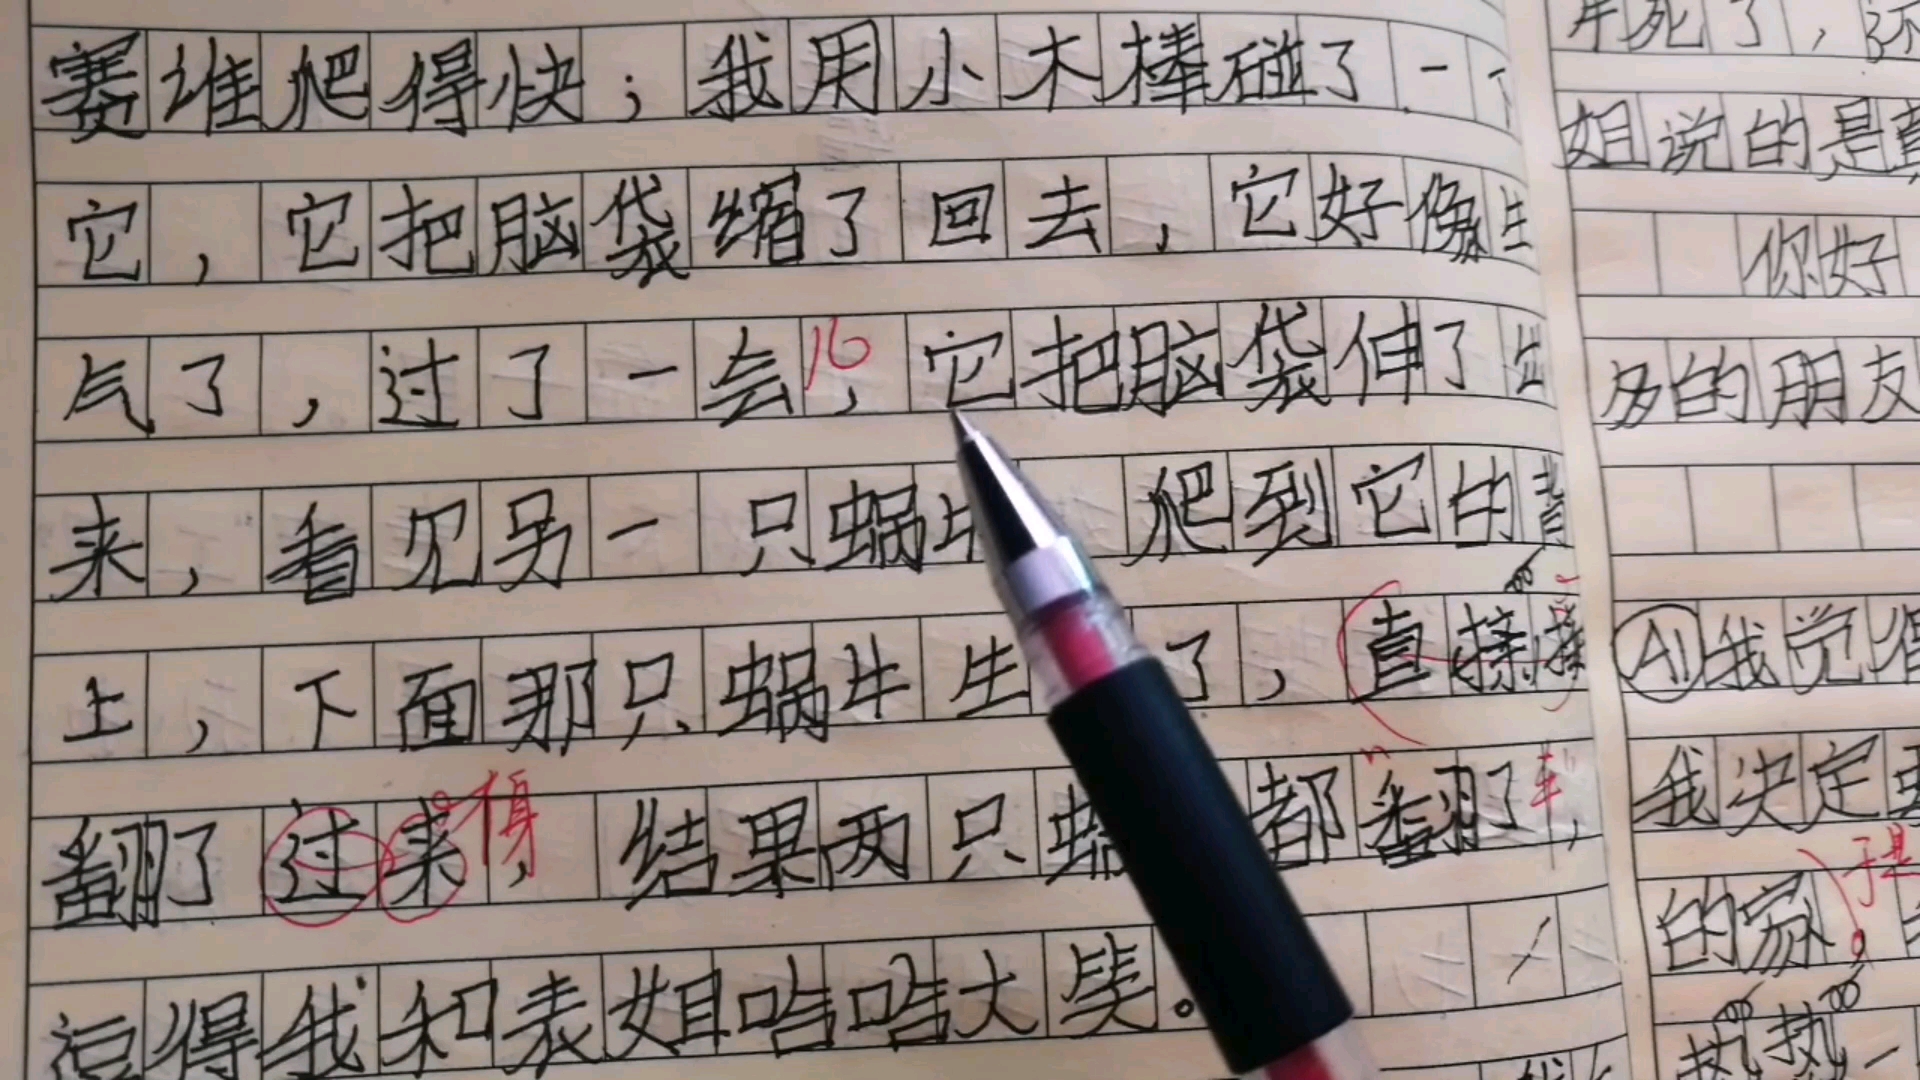 赛谁爬得快；我用小木棒碰了一下
它，它把脑袋缩了回去，它好像生
气了，过了一会儿，它把脑袋伸了出
来，看见另一只蜗牛爬到它的背
上，下面那只蜗牛生了，直接
翻了过来身，结果两只蜗都"翻了车"，
逗得我和表姐哈哈大笑。
死了，还
姐说的是真
你好
多的朋友
AI我觉得
我决定要
的家。于是
热热一